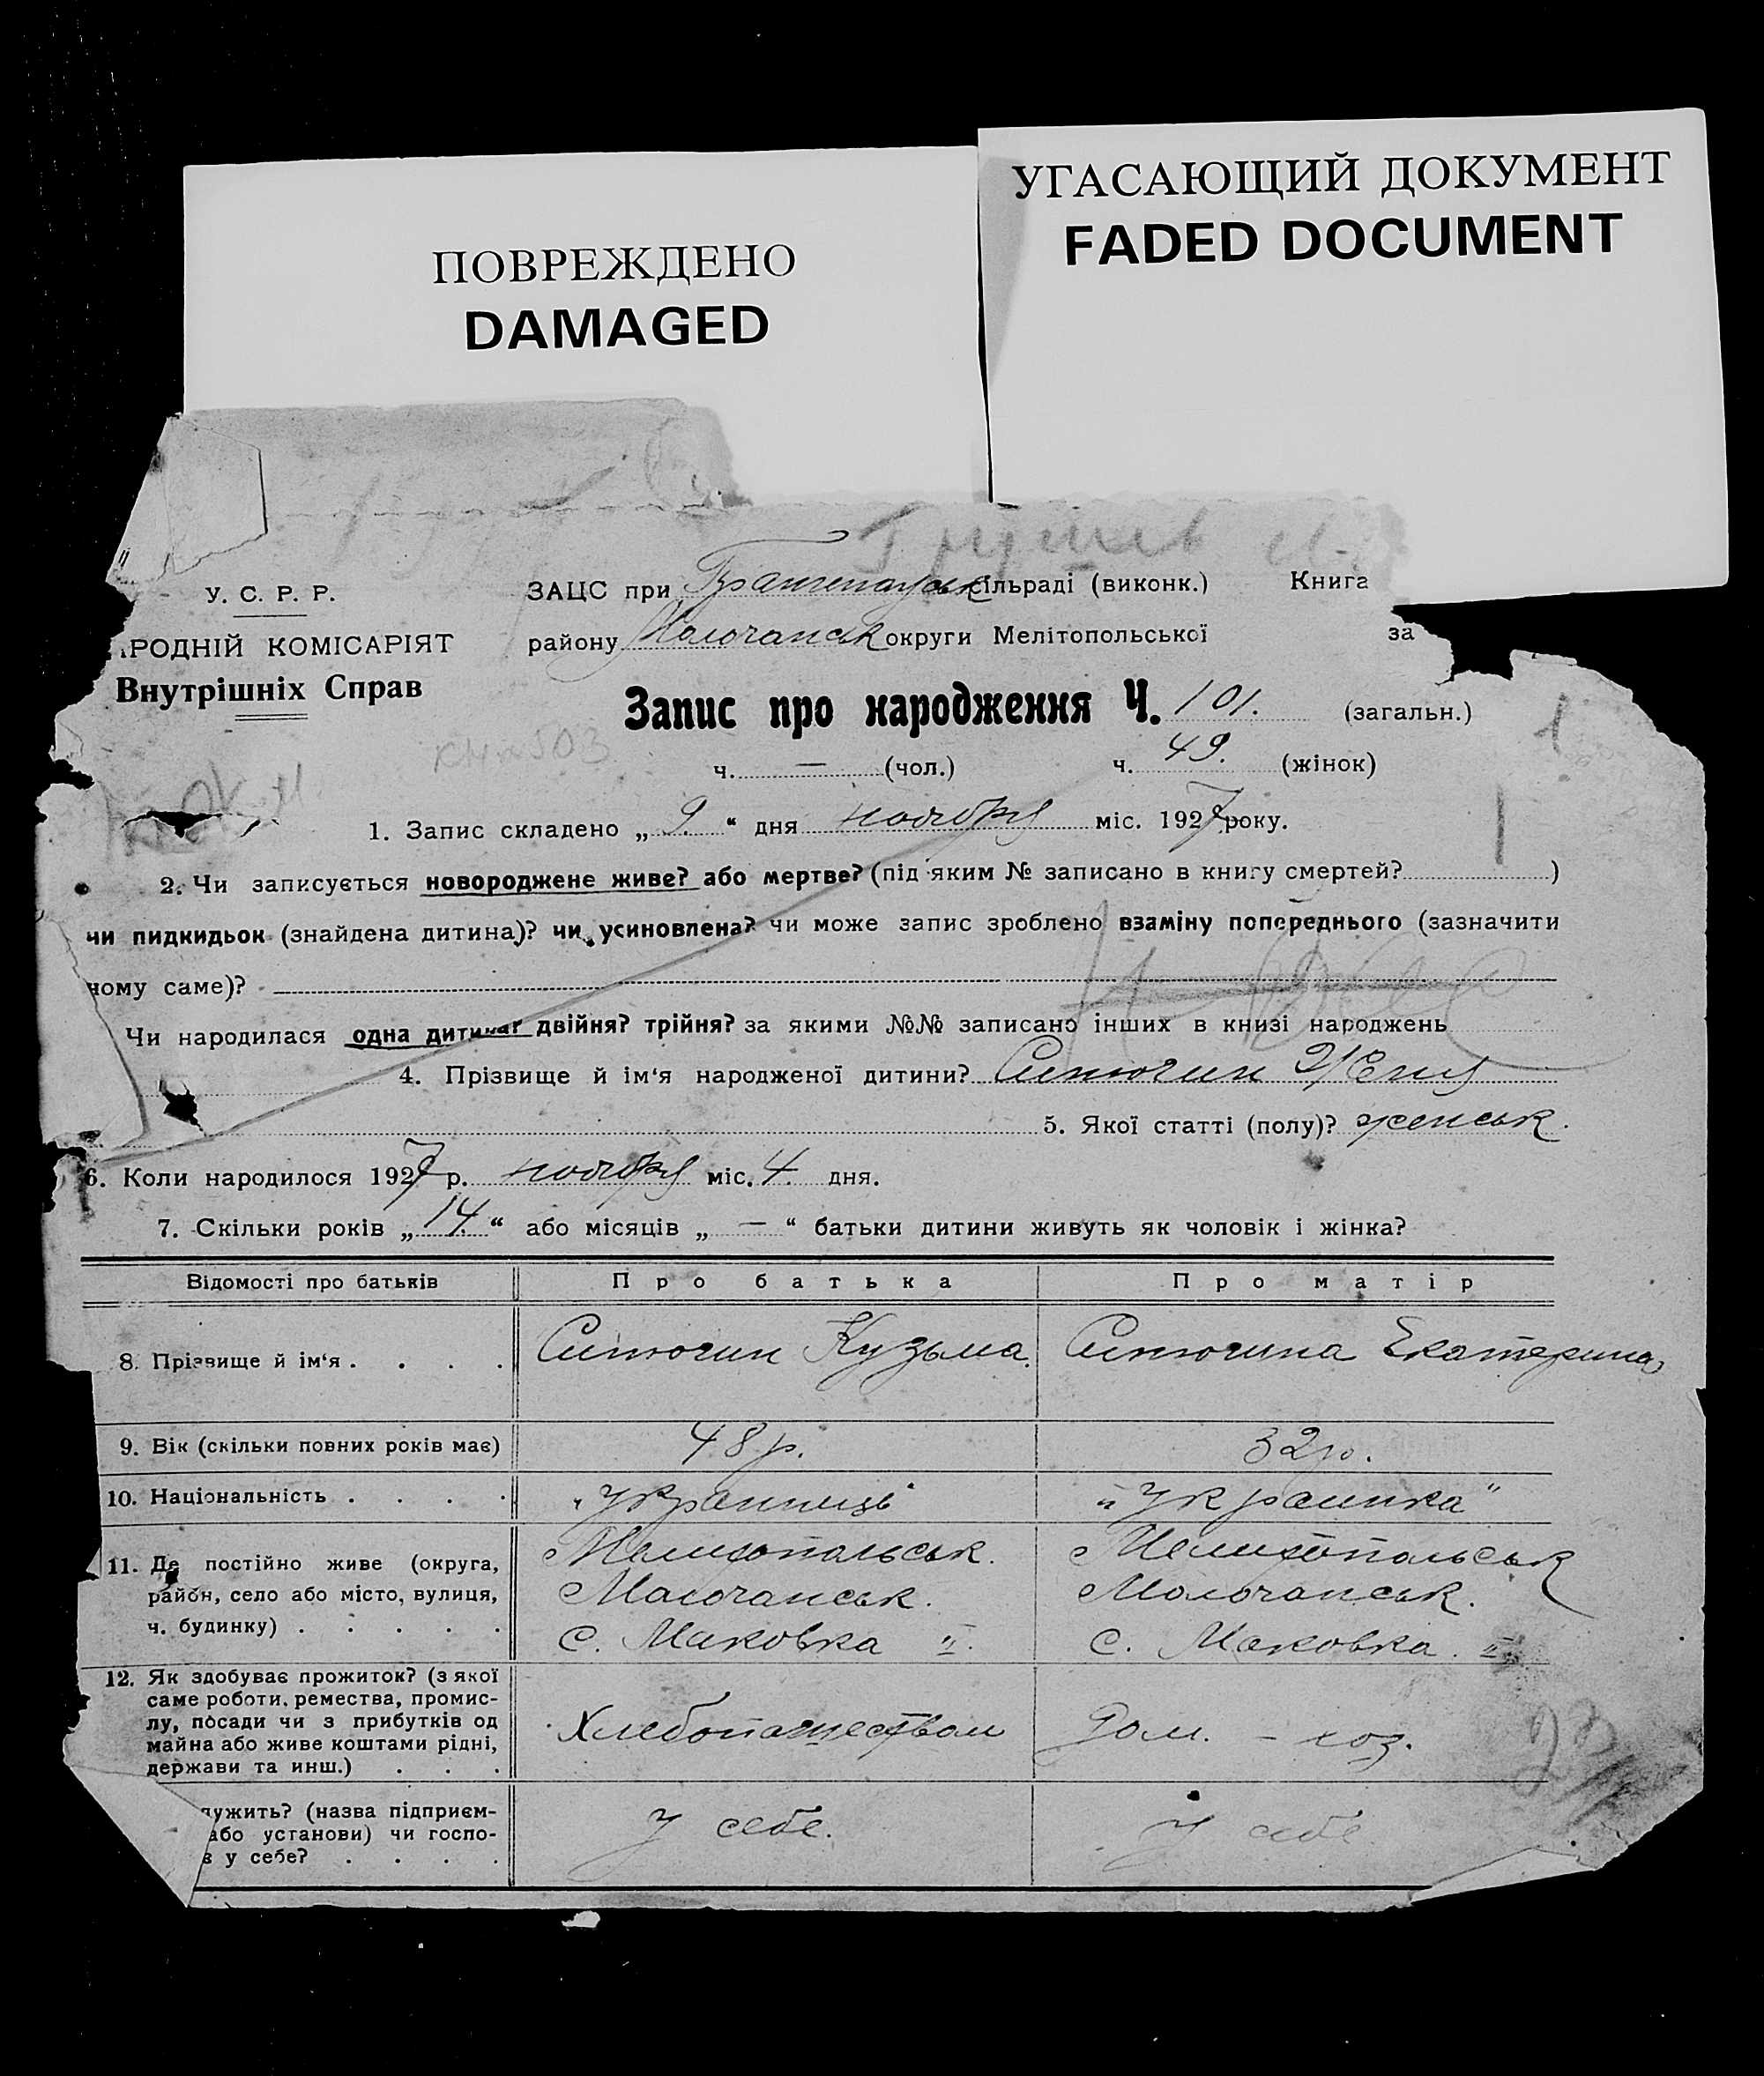 УГАСАЮЩИЙ ДОКУМЕНТ
FADED DOCUMENT
ПОВРЕЖДЕНО
DAMAGED
У. С. Р. Р.
ЗАЦС при сільраді (виконк.) Книга
РОДНІЙ КОМІСАРІЯТ
району Молочанськ округи Мелітопольської за
Внутрішніх Справ
Запис про народження Ч. 101. (загальн.)
ч. — (чол.) ч. 49. (жінок)
1. Запис складено „ 9. “ дня ноября міс. 1927 року.
2. Чи записується новороджене живе? або мертве? (під яким № записано в книгу смертей? )
чи пидкидьок (знайдена дитина)? чи усиновлена? чи може запис зроблено взаміну попереднього (зазначити
чому саме)?
Чи народилася одна дитина? двійня? трійня? за якими №№ записано інших в книзі народжень
4. Прізвище й ім‘я народженої дитини? Ситючин Женя
5. Якої статті (полу)? женськ.
6. Коли народилося 1927 р. ноября міс. 4 дня.
7. Скільки років „ 14 “ або місяців „ — “ батьки дитини живуть як чоловік і жінка?
Відомості про батьків Про батька Про матір
8. Прізвище й ім‘я . . . . Ситючин Кузьма. Ситючина Екатерина
9. Вік (скільки повних років має) 48 р. 32 р.
10. Національність . . . . „Украинець“ „Украинка“
11. Де постійно живе (округа, Мелитопольськ. Мелитопольськ
район, село або місто, вулиця, Молочанськ. Молочанськ.
ч. будинку) . . . . . с. Маковка II. с. Маковка. II
12. Як здобуває прожиток? (з якої
саме роботи, ремества, промис-
лу, посади чи з прибутків од Хлебопашеством Дом. - хоз.
майна або живе коштами рідні,
держави та инш.) . . .
лужить? (назва підприєм-
або установи) чи госпо- У себе. У себе
в у себе? . . . .